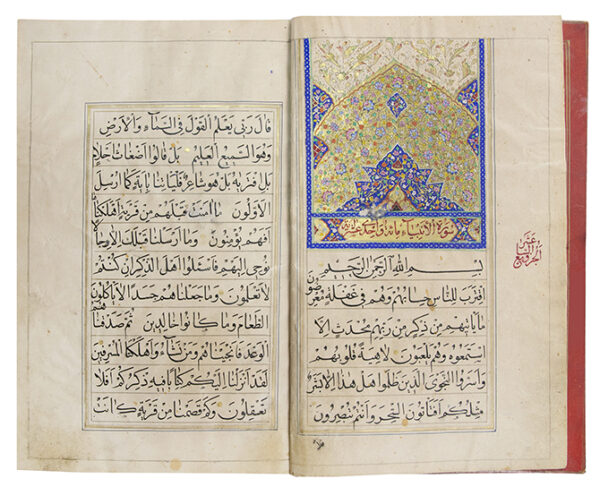 سورة الانبياء مائة واحدى عشر
بسم الله الرحمن الرحيم
اقترب للناس حسابهم وهم في غفلة معرضون
ما يأتيهم من ذكر من ربهم محدث الا
استمعوه وهم يلعبون لاهية قلوبهم
واسروا النجوى الذين ظلموا هل هذا الا بشر
مثلكم افتأتون السحر وانتم تبصرون
قال ربي يعلم القول في السماء والارض
وهو السميع العليم بل قالوا اضغاث احلام
بل افتريه بل هو شاعر فليأتنا بآية كما ارسل
الاولون ما امنت قبلهم من قرية اهلكناها
افهم يؤمنون وما ارسلنا قبلك الا رجالا
نوحي اليهم فاسئلوا اهل الذكر ان كنتم
لا تعلمون وما جعلناهم جسدا لا يأكلون
الطعام وما كانوا خالدين ثم صدقناهم
الوعد فانجيناهم ومن نشاء واهلكنا المسرفين
لقد انزلنا اليكم كتابا فيه ذكركم افلا
تعقلون وكم قصمنا من قرية كانت